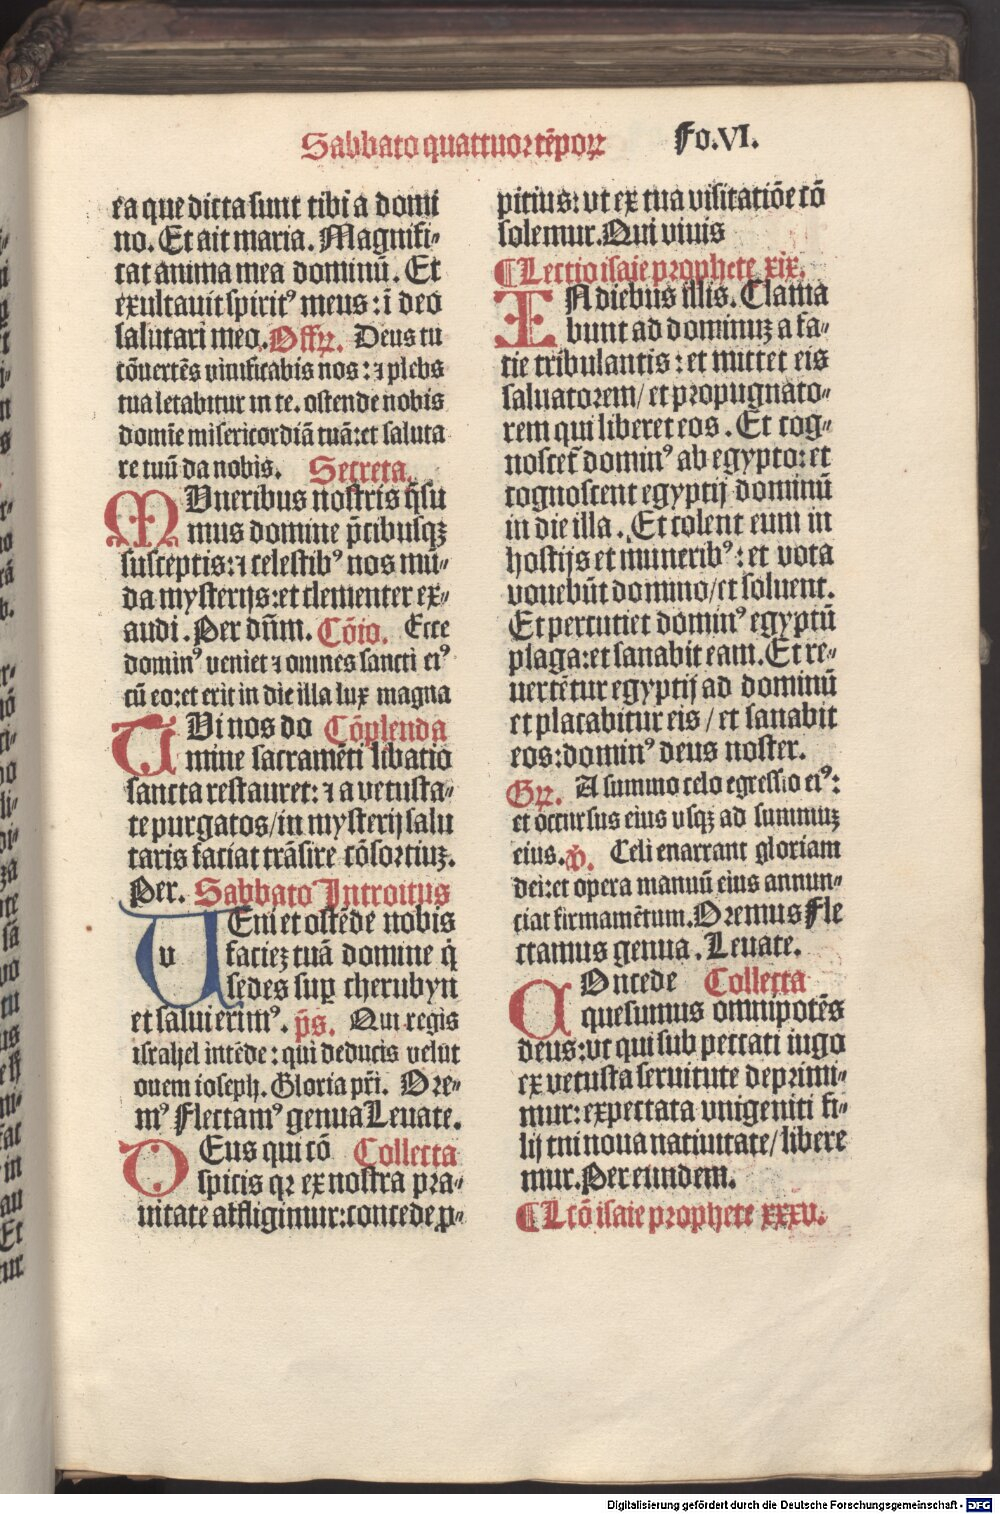 Sabbato quattuor tēpoꝝ Fo.VI.
ea que dicta sunt tibi a domi
no. Et ait maria. Magnifi⸗
cat anima mea dominū. Et
exultauit spirit⁹ meus: ī deo
salutari meo. Offꝝ. Deus tu
cōuertēs viuificabis nos: ⁊ plebs
tua letabitur in te. ostende nobis
domīe misericordiā tuā: et saluta
re tuū da nobis. Secreta.
MVneribus nostris q̄su
mus domine p̄cibusqꝫ
susceptis: ⁊ celestib⁹ nos mū⸗
da mysterijs: et clementer ex⸗
audi. Per dn̄m. Cōio. Ecce
domin⁹ veniet ⁊ omnes sancti ei⁹
cū eo: et erit in die illa lux magna
TVi nos do Cōplenda
mine sacramēti libatio
sancta restauret: ⁊ a vetusta⸗
te purgatos/ in mysterij salu
taris faciat trāsire cōsortiuꝫ.
Per. Sabbato Introitus
VEni et ostēde nobis
v facieꝫ tuā domine q̇
sedes suꝑ cherubyn
et salui erim⁹. p̄s. Qui regis
israhel intēde: qui deducis velut
ouem ioseph. Gloria pr̄i. Ore⸗
m⁹ Flectam⁹ genua Leuate.
DEus qui cō Collecta
spicis qꝛ ex nostra pra⸗
uitate affligimur: concede ꝓ⸗
pitius: vt ex tua visitatiōe cō
solemur. Qui viuis
¶Lectio isaie prophete xix.
IN diebus illis. Clama
bunt ad dominuꝫ a fa⸗
cie tribulantis: et mittet eis
saluatorem/ et propugnato⸗
rem qui liberet eos. Et cog⸗
noscet̄ domin⁹ ab egypto: et
cognoscent egyptij dominū
in die illa. Et colent eum in
hostijs et munerib⁹: et vota
vouebūt domino/ et soluent.
Et percutiet domin⁹ egyptū
plaga: et sanabit eam. Et re⸗
uertētur egyptij ad dominū
et placabitur eis/ et sanabit
eos: domin⁹ deus noster.
Gꝝ. A summo celo egressio ei⁹:
et occursus eius vsqꝫ ad summuꝫ
eius. ℣. Celi enarrant gloriam
dei: et opera manuū eius annun⸗
ciat firmamētum. Oremus Fle
ctamus genua. Leuate.
COncede Collecta
quesumus omnipotēs
deus: vt qui sub peccati iugo
ex vetusta seruitute deprimi⸗
mur: expectata vnigeniti fi⸗
lij tui noua natiuitate/ libere
mur. Per eundem.
¶Lcō isaie prophete xxxv.
Digitalisierung gefördert durch die Deutsche Forschungsgemeinschaft - DFG